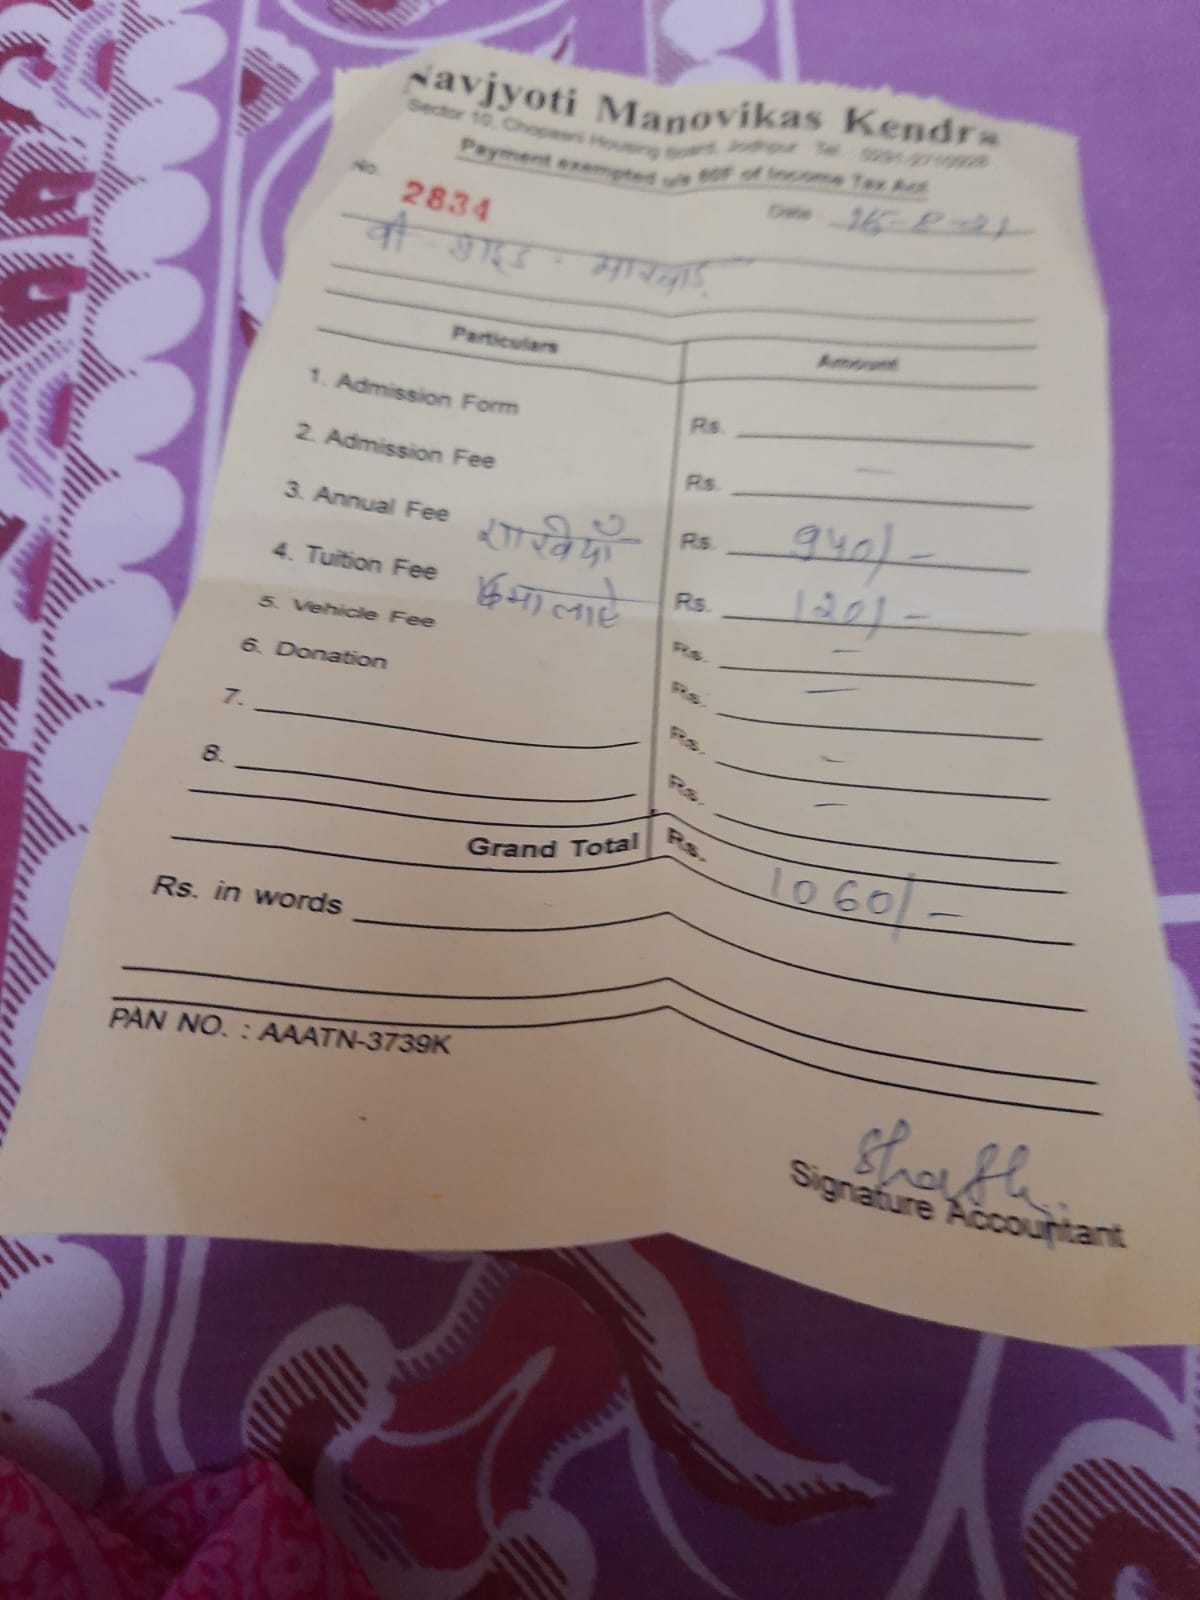 Navjyoti Manovikas Kendra
Sector 10, Chopasni Housing Board, Jodhpur Tel. 0291-2710928
Payment exempted u/s 80F of Income Tax Act
No. 2834 Date
मारवाड़
Particulars Amount
1. Admission Form Rs.
2. Admission Fee Rs. —
3. Annual Fee राखियाँ Rs. 940/-
4. Tuition Fee Rs. 120/-
5. Vehicle Fee Rs. —
6. Donation Rs. —
7. Rs. —
8. Rs. —
Grand Total Rs. 1060/-
Rs. in words
PAN NO. : AAATN-3739K
Signature Accountant